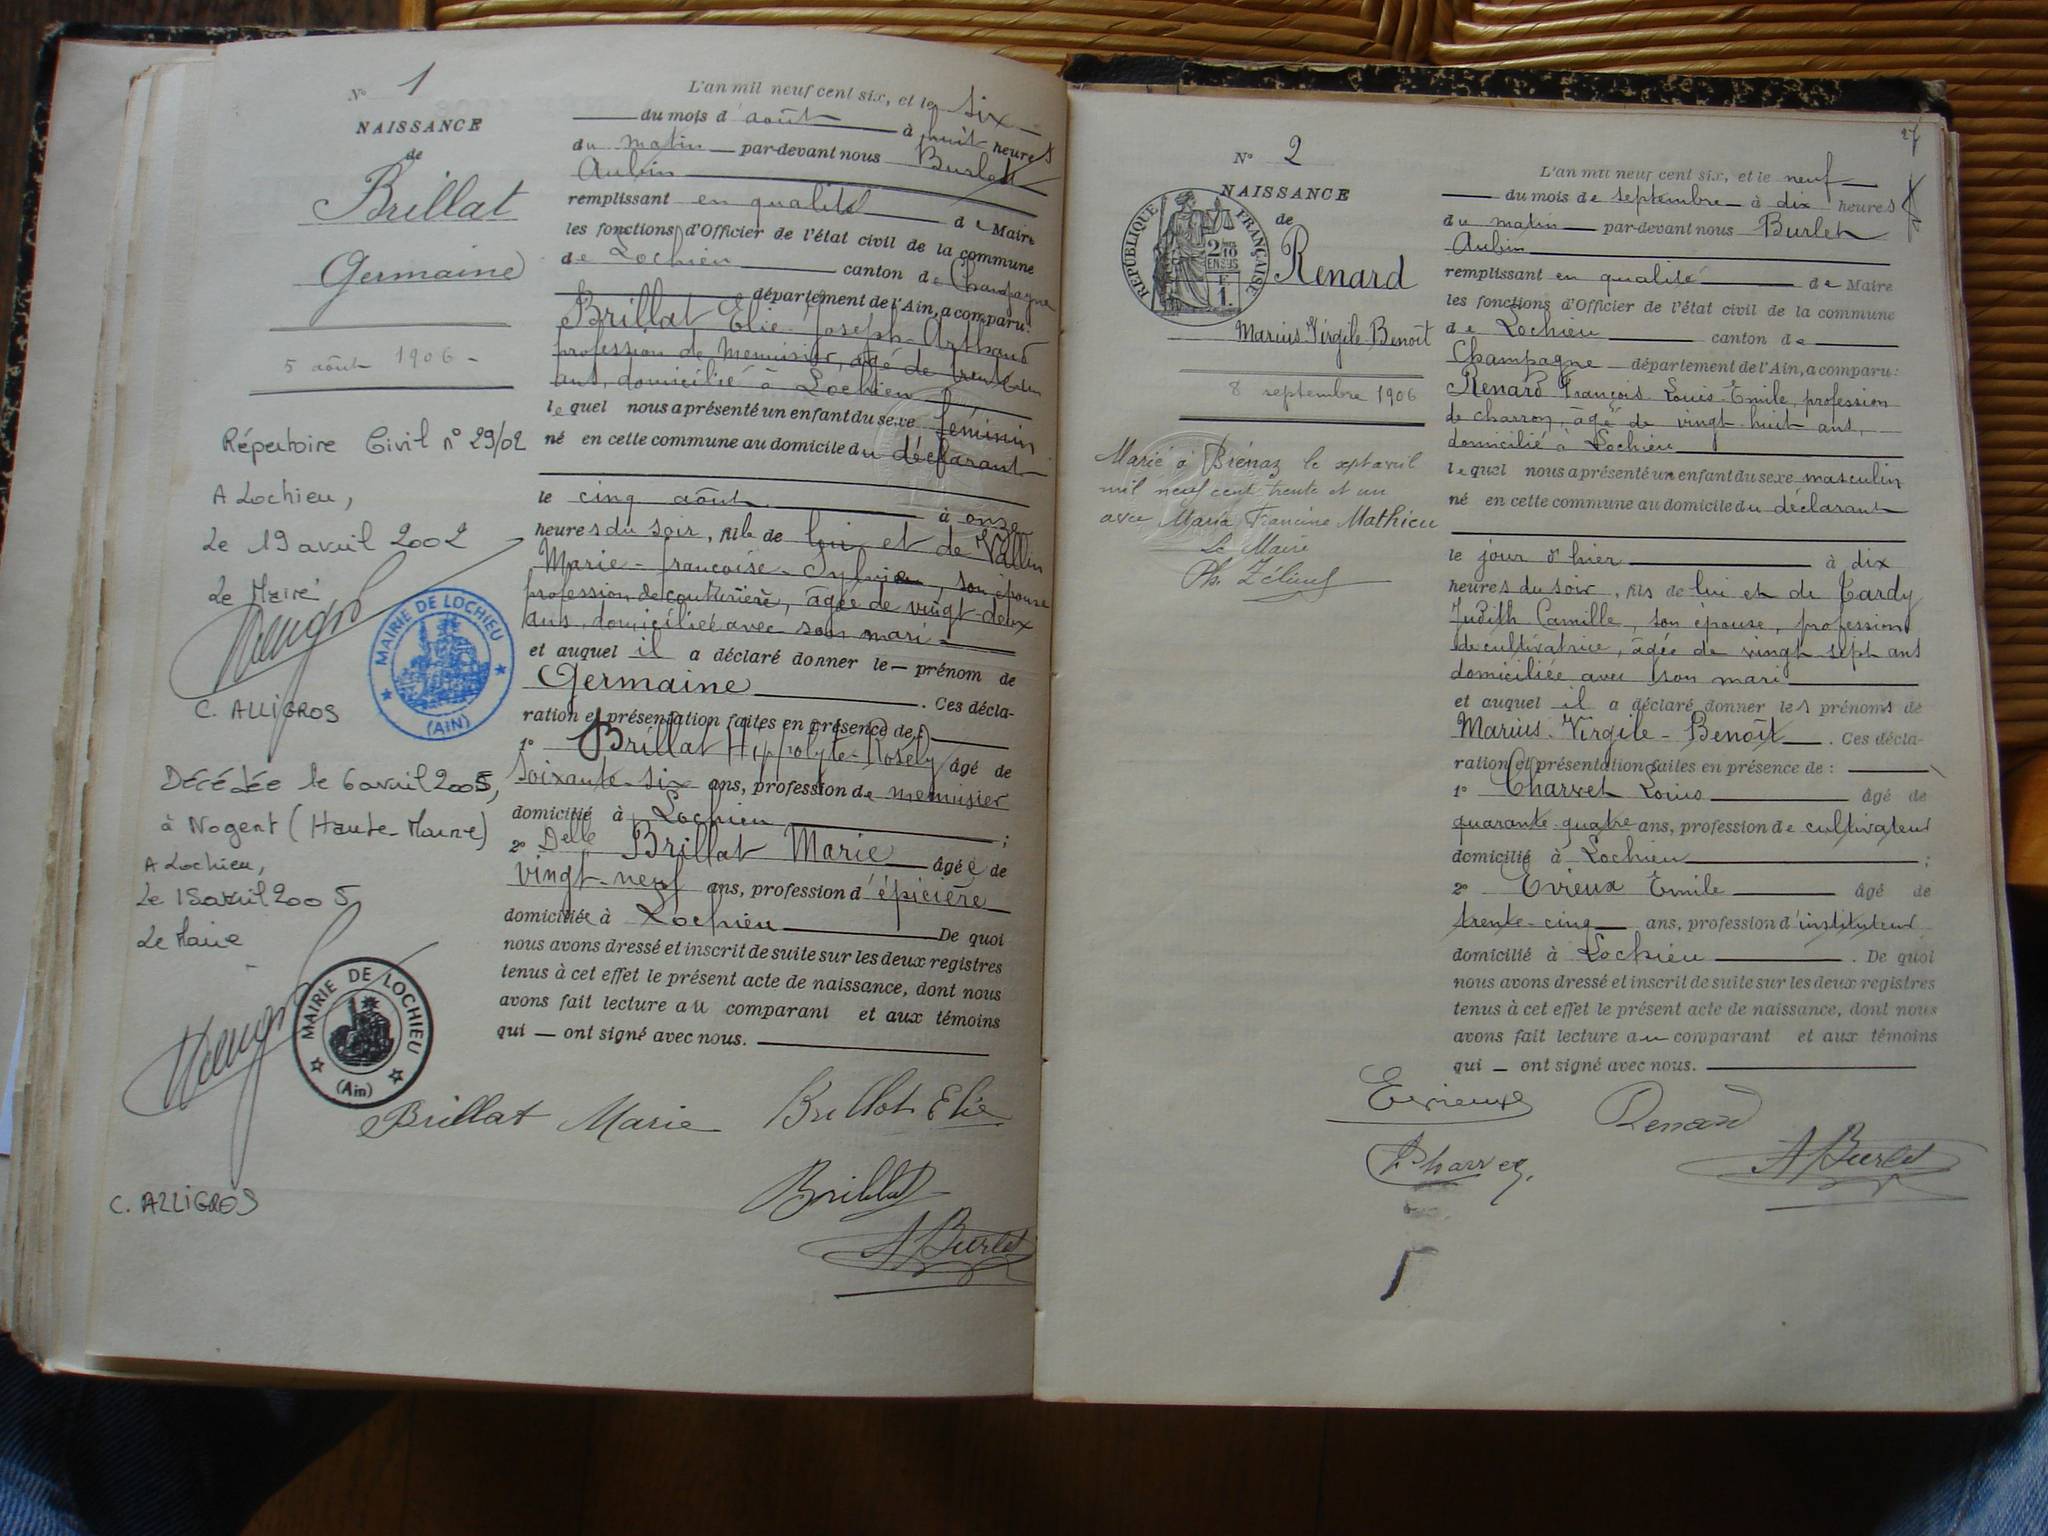 N° 1
NAISSANCE
de
Brillat
Germaine
5 août 1906
Répertoire Civil n° 29/02
A Lochieu,
Le 19 avril 2002
Le Maire
MAIRIE DE LOCHIEU
(AIN)
C. ALLIGROS
Décédée le 6 avril 2005,
à Nogent (Haute-Marne)
A Lochieu,
Le 15 avril 2005
Le Maire
MAIRIE DE LOCHIEU
(Ain)
C. ALLIGROS
L'an mil neuf cent six, et le six
du mois d'août à huit heures
du matin par-devant nous Burlet
Aubin
remplissant en qualité de Maire
les fonctions d'Officier de l'état civil de la commune
de Lochieu canton de Champagne
département de l'Ain, a comparu:
Brillat Elie-Joseph-Arthaud
profession de menuisier, âgé de trente-un
ans, domicilié à Lochieu
lequel nous a présenté un enfant du sexe féminin
né en cette commune au domicile du déclarant
le cinq août à onze
heures du soir, fille de lui et de Vallin
Marie-françoise-Sylvie, son épouse
profession de couturière, âgée de vingt-deux
ans, domiciliée avec son mari
et auquel il a déclaré donner le prénom de
Germaine. Ces décla-
ration et présentation faites en présence de:
1° Brillat Hippolyte-Rosely âgé de
soixante-six ans, profession de menuisier
domicilié à Lochieu;
2° Delle Brillat Marie âgée de
vingt-neuf ans, profession d'épicière
domiciliée à Lochieu De quoi
nous avons dressé et inscrit de suite sur les deux registres
tenus à cet effet le présent acte de naissance, dont nous
avons fait lecture au comparant et aux témoins
qui ont signé avec nous.
Brillat Marie Brillat Elie
Brillat
A Burlet
27
N° 2
NAISSANCE
de
RÉPUBLIQUE FRANÇAISE
Renard
Marius-Virgile-Benoît
8 septembre 1906
Marié à Brénaz le sept avril
mil neuf cent trente et un
avec Maria Francine Mathieu
Le Maire
L'an mil neuf cent six, et le neuf
du mois de septembre à dix heures
du matin par-devant nous Burlet
Aubin
remplissant en qualité de Maire
les fonctions d'Officier de l'état civil de la commune
de Lochieu canton de
Champagne département de l'Ain, a comparu:
Renard François-Louis-Emile, profession
de charron, âgé de vingt-huit ans,
domicilié à Lochieu
lequel nous a présenté un enfant du sexe masculin
né en cette commune au domicile du déclarant
le jour d'hier à dix
heures du soir, fils de lui et de Tardy
Judith Camille, son épouse, profession
de cultivatrice, âgée de vingt-sept ans
domiciliée avec son mari
et auquel il a déclaré donner les prénoms de
Marius-Virgile-Benoît. Ces décla-
ration et présentation faites en présence de:
1° Charvet Louis âgé de
quarante-quatre ans, profession de cultivateur
domicilié à Lochieu;
2° Evieux Emile âgé de
trente-cinq ans, profession d'instituteur
domicilié à Lochieu. De quoi
nous avons dressé et inscrit de suite sur les deux registres
tenus à cet effet le présent acte de naissance, dont nous
avons fait lecture au comparant et aux témoins
qui ont signé avec nous.
Evieux Renard
Charvet A Burlet